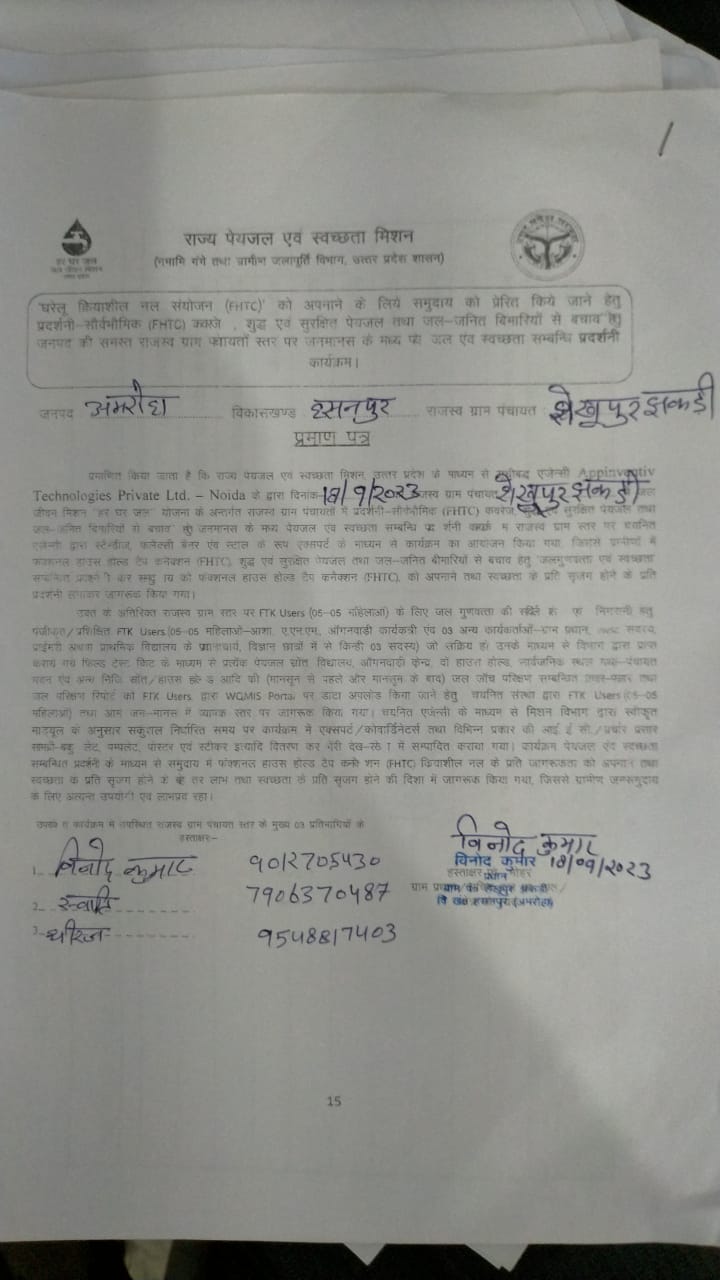 राज्य पेयजल एवं स्वच्छता मिशन
हर घर जल
जल जीवन मिशन
(नमामि गंगे तथा ग्रामीण जलापूर्ति विभाग, उत्तर प्रदेश शासन)
'घरेलू क्रियाशील नल संयोजन (FHTC)' को अपनाने के लिये समुदाय को प्रेरित किये जाने हेतु
प्रदर्शनी–सार्वभौमिक (FHTC) कवरेज , शुद्ध एवं सुरक्षित पेयजल तथा जल–जनित बिमारियों से बचाव हेतु
जनपद की समस्त राजस्व ग्राम पंचायतों स्तर पर जनमानस के मध्य पेय जल एवं स्वच्छता सम्बन्धि प्रदर्शनी
कार्यक्रम।
जनपद अमरोहा विकासखण्ड हसनपुर राजस्व ग्राम पंचायत : शेखूपुर झकड़ी
प्रमाण पत्र
प्रमाणित किया जाता है कि राज्य पेयजल एवं स्वच्छता मिशन, उत्तर प्रदेश के माध्यम से एजेन्सी Appinventiv
Technologies Private Ltd. – Noida के द्वारा दिनांक 18/9/2023 राजस्व ग्राम पंचायत शेखूपुर झकड़ी जल
जीवन मिशन "हर घर जल" योजना के अन्तर्गत राजस्व ग्राम पंचायतों में प्रदर्शनी–सार्वभौमिक (FHTC) कवरेज, सुरक्षित पेयजल तथा
जल–जनित बिमारियों से बचाव हेतु जनमानस के मध्य पेयजल एवं स्वच्छता सम्बन्धि राजस्व ग्राम स्तर पर चयनित
एजेन्सी द्वारा स्टेन्डीज, कनेक्सी बैनर एंव स्टाल के रूप एक्सपर्ट के माध्यम से कार्यक्रम का आयोजन किया गया, जिससे ग्रामीणों में
फंक्शनल हाउस होल्ड टैप कनेक्शन (FHTC), शुद्ध एवं सुरक्षित पेयजल तथा जल–जनित बीमारियों से बचाव हेतु 'जलगुणवत्ता एवं स्वच्छता'
सम्बन्धित कर को फंक्शनल हाउस होल्ड टैप कनेक्शन (FHTC), को अपनाने तथा स्वच्छता के प्रति सृजग होने के प्रति
प्रदर्शनी लगाकर जागरूक किया गया।
उक्त के अतिरिक्त राजस्व ग्राम स्तर पर FTK Users (05–05 महिलाओं) के लिए जल गुणवत्ता की निगरानी हेतु
पंजीकृत/प्रशिक्षित FTK Users (05–05 महिलाओं–आशा, ए.एन.एम., आँगनवाड़ी कार्यकत्री एंव 03 अन्य कार्यकर्ताओं–ग्राम प्रधान, सदस्य,
प्राईमरी अथवा प्राथमिक विद्यालय के प्रधानाचार्य, विज्ञान छात्रों में से किन्ही 03 सदस्य) जो सक्रिय हो उनके माध्यम से विभाग द्वारा प्राप्त
कराये गये फिल्ड टेस्ट किट के माध्यम से प्रत्येक पेयजल स्रोत विद्यालय, आँगनवाड़ी केन्द्र, हाउस होल्ड, सार्वजनिक स्थल पंचायत
भवन एंव अन्य निधि स्रोत/हाउस होल्ड आदि की (मानसून से पहले और मानसून के बाद) जल जाँच परिक्षण सम्बन्धित प्रचार–प्रसार तथा
जल परिक्षण रिपोर्ट को FTK Users द्वारा WQMIS Portal पर डाटा अपलोड किया जाने हेतु चयनित संस्था द्वारा FTK Users (05–05
महिलाओं) तथा आम जन–मानस में व्यापक स्तर पर जागरूक किया गया। चयनित एजेन्सी के माध्यम से मिशन विभाग द्वारा स्वीकृत
माड्यूल के अनुसार सकुशल निर्धारित समय पर कार्यक्रम में एक्सपर्ट/कोवार्डिनेटर्स तथा विभिन्न प्रकार की आई. ई. सी./प्रचार प्रसार
सामग्री–बुकलेट, पम्पलेट, पोस्टर एवं स्टीकर इत्यादि वितरण कर मेरी देख–रेख में सम्पादित कराया गया। कार्यक्रम पेयजल एंव स्वच्छता
सम्बन्धित प्रदर्शनी के माध्यम से समुदाय में फंक्शनल हाउस होल्ड टैप कनेक्शन (FHTC) क्रियाशील नल के प्रति जागरूकता को अपनाने तथा
स्वच्छता के प्रति सृजग होने के बेहतर लाभ तथा स्वच्छता के प्रति सृजग होने की दिशा में जागरूक किया गया, जिससे ग्रामीण जनसमुदाय
के लिए अत्यन्त उपयोगी एवं लाभप्रद रहा।
उपरोक्त कार्यक्रम में उपस्थित राजस्व ग्राम पंचायत स्तर के मुख्य 03 प्रतिभागियों के
हस्ताक्षर:–
1. विनोद कुमार 9012705430
2. स्वाति 7906370487
3. धीरज 9548817403
विनोद कुमार
विनोद कुमार 18/09/2023
हस्ताक्षर एवं मोहर
प्रधान
ग्राम पं० शेखुपुर झकड़ी
वि० खण्ड हसनपुर (अमरोहा)
15